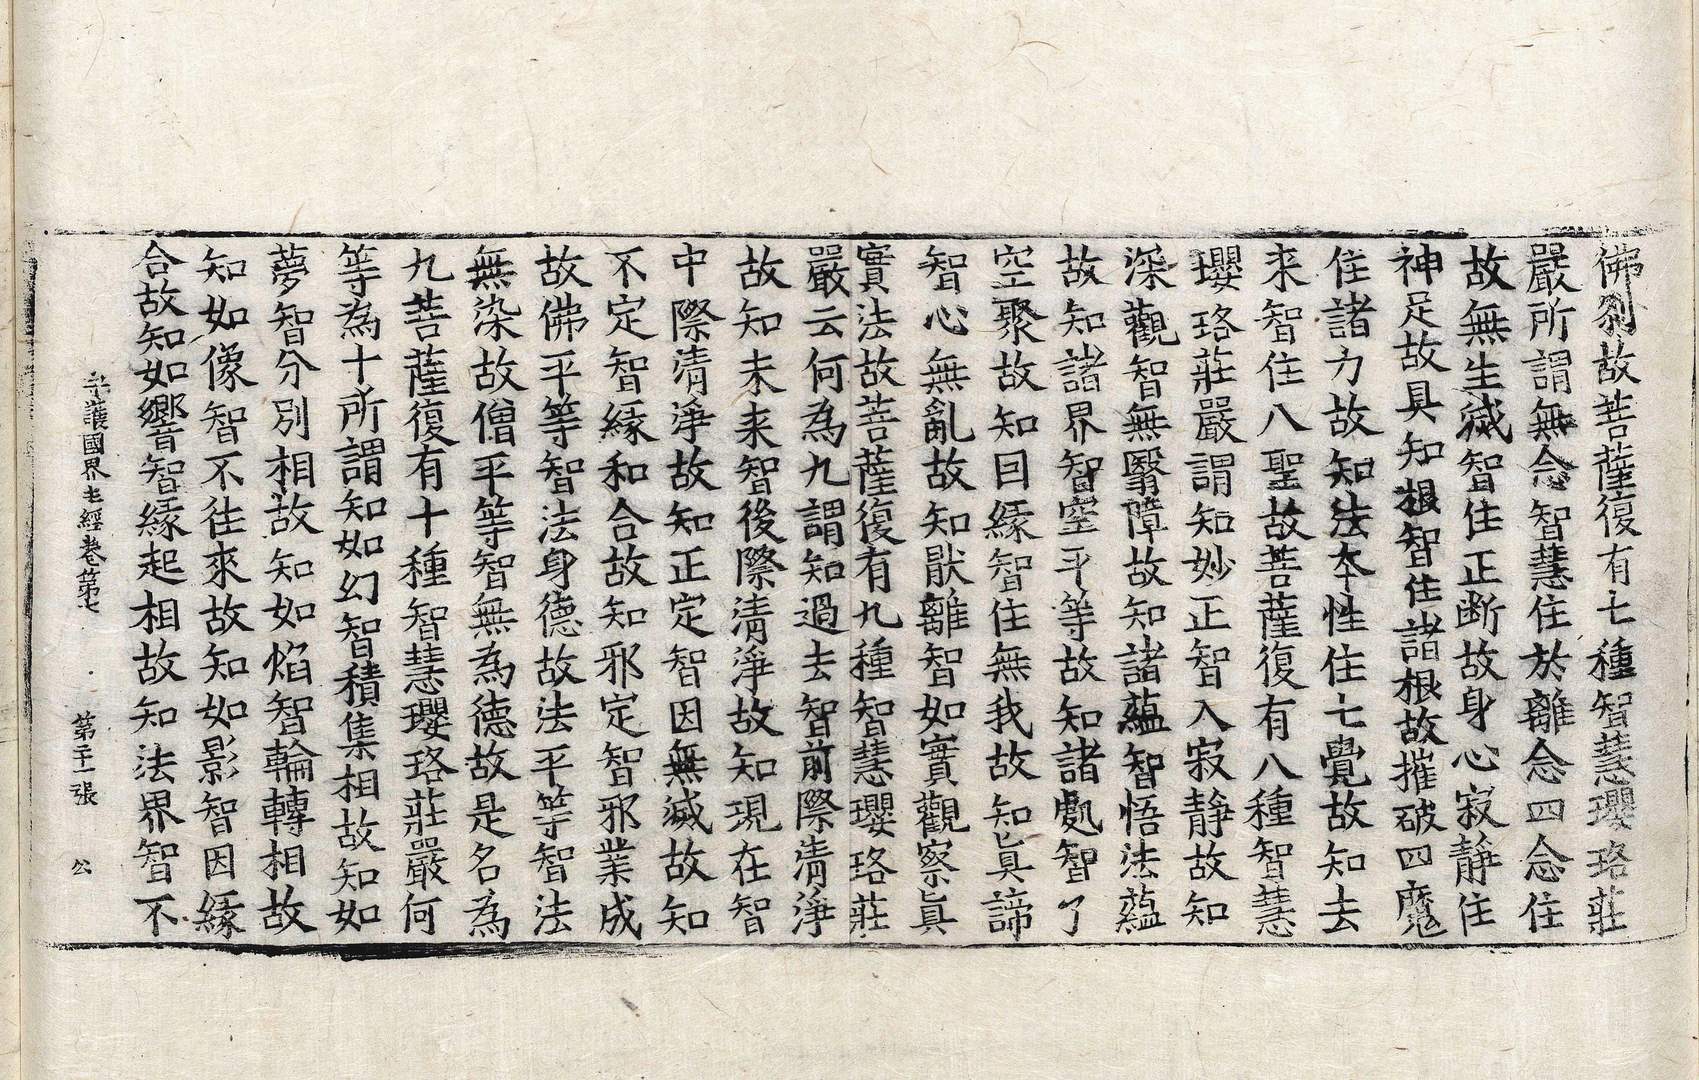 佛剎故菩薩復有七種智慧瓔珞莊
嚴所謂無念智慧住於離念四念住
故無生滅智住正斷故身心寂靜住
神足故具知根智住諸根故摧破四魔
住諸力故知法本性住七覺故知去
来智住八聖故菩薩復有八種智慧
瓔珞莊嚴謂知妙正智入寂靜故知
深觀智無翳障故知諸蘊智悟法蘊
故知諸界智空平等故知諸處智了
空聚故知因緣智住無我故知眞諦
智心無亂故知猒離智如實觀察眞
實法故菩薩復有九種智慧瓔珞莊
嚴云何為九謂知過去智前際清淨
故知未来智後際清淨故知現在智
中際清淨故知正定智因無滅故知
不定智緣和合故知邪定智邪業成
故佛平等智法身德故法平等智法
無染故僧平等智無為德故是名為
九菩薩復有十種智慧瓔珞莊嚴何
等為十所謂知如幻智積集相故知如
夢智分別相故知如焰智輪轉相故
知如像智不往來故知如影智因緣
合故知如響智緣起相故知法界智不
守護國界主經卷第七　第二十一張　公